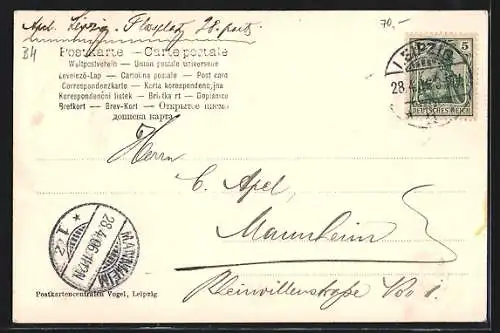 Apel. Leipzig. Flossplatz 28. part.
70,-
B4
Postkarte – Carte postale
Weltpostverein – Union postale universelle
Levelező-Lap – Cartolina postale – Post card
Correspondenzkarte – Karta korespondencyjna
Korespondenční lístek – Brietkart – Dopisnice
Brefkort – Brev-Kort – Открытое письмо
дописна карта
LEIPZIG
28.4.
5
DEUTSCHES REICH
Herrn
C. Apel,
Mannheim
MANNHEIM
28.4.06.
* 1 z
Postkartencentralen Vogel, Leipzig